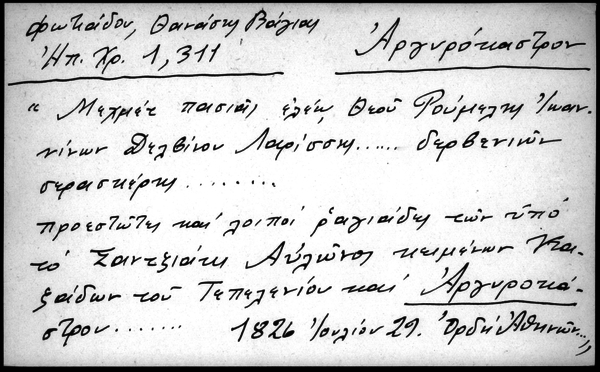 Φωτιάδου, Θανάσης Βάγιας
Ἠπ. Χρ. 1, 311
Ἀργυρόκαστρον
"Μεχμέτ πασιᾶς ἐλέῳ Θεοῦ Ρούμελης Ἰωαν-
νίνων Δελβίνου Λαρίσσης...... δερβενίων
σερασκέρης.........
προεστῶτες καί λοιποί ραγιάδες τῶν ὑπό
τό Σαντζιάκι Αὐλῶνος κειμένων Κα-
ζάδων τοῦ Τεπελενίου καί Ἀργυροκά-
στρου....... 1826 Ἰουλίου 29. Ὀρδί Ἀθηνῶν...,,